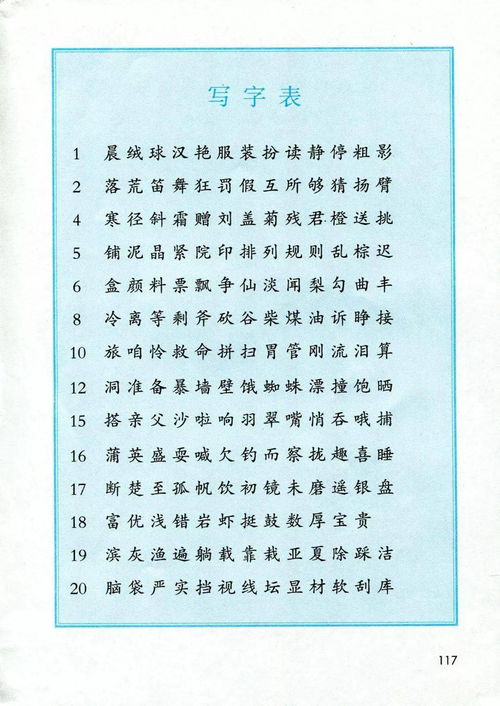 写字表
1 晨绒球汉艳服装扮读静停粗影
2 落荒笛舞狂罚假互所够猜扬臂
4 寒径斜霜赠刘盖菊残君橙送挑
5 铺泥晶紧院印排列规则乱棕迟
6 盒颜料票飘争仙淡闻梨勾曲丰
8 冷离等剩斧砍谷柴煤油诉睁接
10 旅咱怜救命拼扫胃管刚流泪算
12 洞准备暴墙壁饿蜘蛛漂撞饱晒
15 搭亲父沙啦响羽翠嘴悄吞哦捕
16 蒲英盛耍喊欠钓而察拢趣喜睡
17 断楚至孤帆饮初镜未磨遥银盘
18 富优浅错岩虾挺鼓数厚宝贵
19 滨灰渔遍躺载靠栽亚夏除踩洁
20 脑袋严实挡视线坛显材软刮库
117